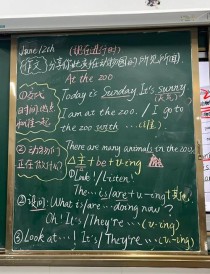 June 12th (现在进行时)
作文 分享你此刻在动物园的所见所闻.
At the zoo
①分成 Today is Sunday It's sunny
时间地点 I am at the zoo. / I go to
the zoo with ...
②动物们 There are many animals in the zoo.
正在做什么? △主+be+v-ing
①Look! / Listen!
The... is/are+v-ing
②设问: What is/are ... doing now?
Oh! It's / They're ... (v-ing)
③Look at ...! It's / They're ... (v-ing)